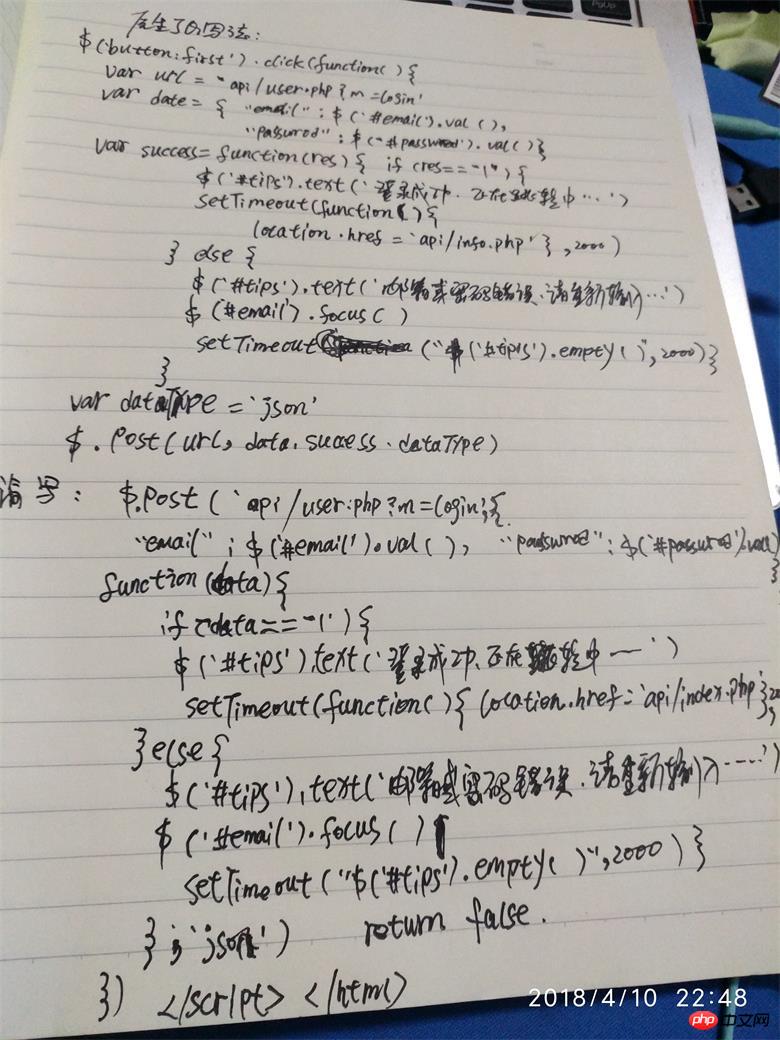 $('button:first').click(function(){
var url = 'api/user.php?m=login'
var date = { "email" : $('#email').val(),
"password" : $("#password').val()}
var success = function(res){ if (res=='1'){
$('#tips').text('登录成功,正在跳转中…')
setTimeout(function(){
location.href = 'api/info.php' } ,2000)
} else {
$('#tips').text('邮箱或密码错误,请重新输入…')
$('#email').focus()
setTimeout ("$('#tips').empty()",2000)}
}
var dataType = 'json'
$.post(url, data, success, dataType)
简写: $.post('api/user.php?m=login',{
"email" : $('#email').val(), "password": $('#password').val()
}
function(data){
if(data=='1'){
$('#tips').text('登录成功,正在跳转中…')
setTimeout(function(){ location.href='api/index.php'},20
}else{
$('#tips').text('邮箱或密码错误,请重新输入……')
$('#email').focus()
setTimeout("$('#tips').empty()",2000)}
};'json') return false.
}) </script> </html>
2018/4/10 22:48
php 中文网
PgUp